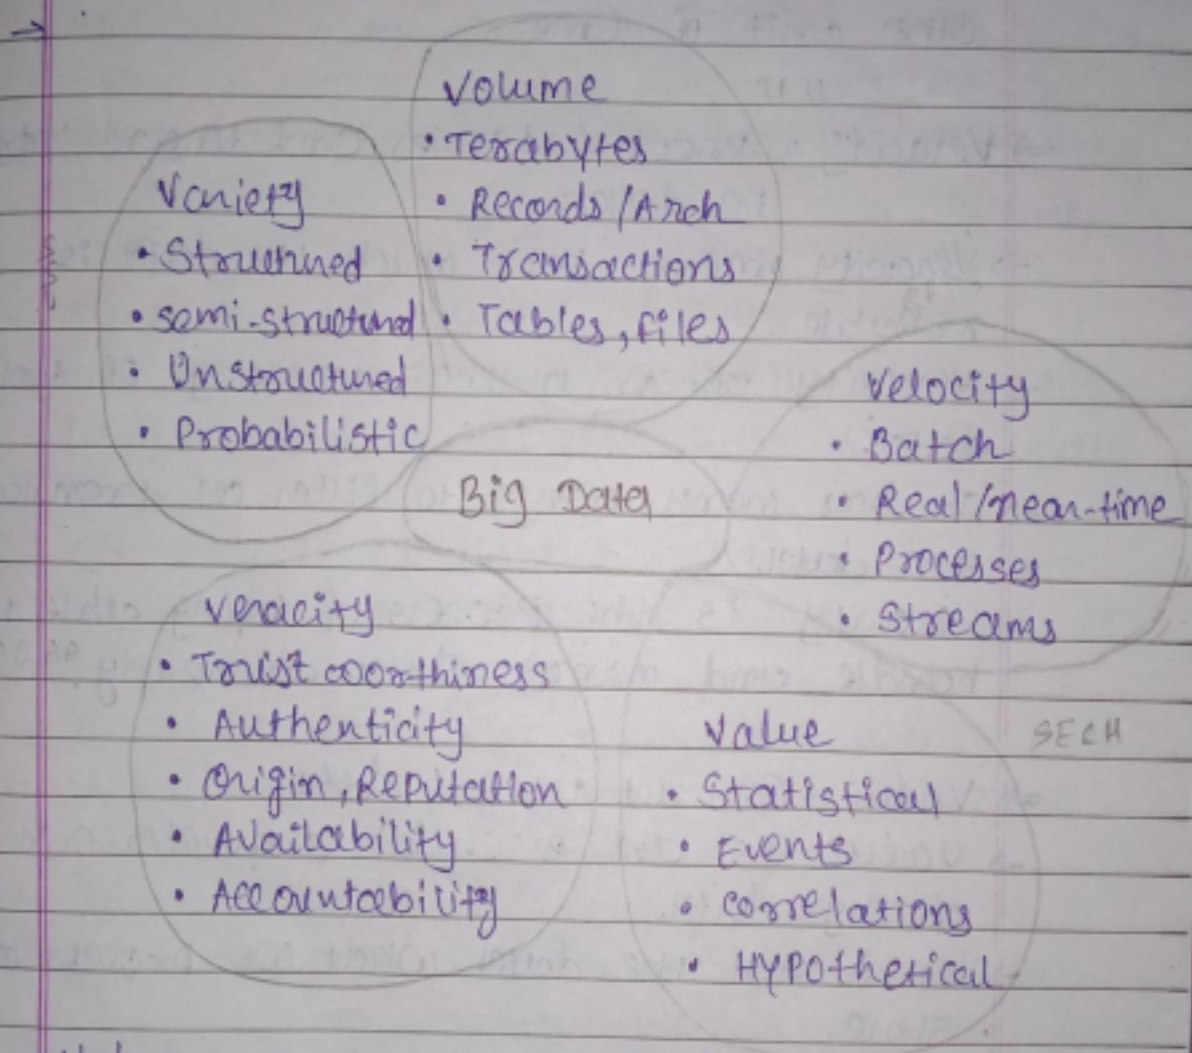 Volume
• Terabytes
• Records/Arch
• Transactions
• Tables, files
Variety
• Structured
• semi-structured
• Unstructured
• Probabilistic
Big Data
Velocity
• Batch
• Real/near-time
• Processes
• Streams
Veracity
• Trust worthiness
• Authenticity
• Origin, Reputation
• Availability
• Accountability
Value
• Statistical
• Events
• correlations
• HYPOthetical
SECH